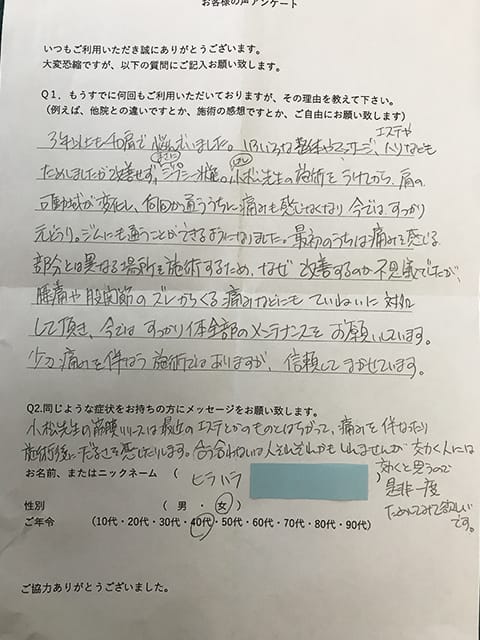 お客様の声アンケート
いつもご利用いただき誠にありがとうございます。
大変恐縮ですが、以下の質問にご記入お願い致します。
Q1．もうすでに何回もご利用いただいておりますが、その理由を教えて下さい。
（例えば、他院との違いですとか、施術の感想ですとか、ご自由にお願い致します）
エステや
3年以上も40肩で悩んでいました。いろいろな整体やマッサージ、ハリなども
まさに
ためしましたが改善せず、ジプシー状態。小松先生の施術をうけてから、肩の
可動域が変化し、何回か通ううちに痛みも感じなくなり今ではすっかり
元どうり。ジムにも通うことができるようになりました。最初のうちは痛みを感じる
部分とは異なる場所を施術するため、なぜ改善するのか不思議でしたが、
腰痛や股関節のズレからくる痛みなどにもていねいに対処
して頂き、今ではすっかり体全部のメンテナンスをお願いしています。
少々痛みを伴なう施術ではありますが、信頼してまかせています。
Q2.同じような症状をお持ちの方にメッセージをお願い致します。
小松先生の筋膜リリースは最近のエステとかのものとはちがって、痛みを伴なったり
施術後にだるさを感じたりします。合う合わないは人それぞれかもしれませんが効く人には
効くと思うので
是非一度
ためしてみて欲しい
です。
お名前、またはニックネーム （ ヒラハラ ）
性別 （ 男 ・ 女 ）
ご年令 （10代・20代・30代・40代・50代・60代・70代・80代・90代）
ご協力ありがとうございました。